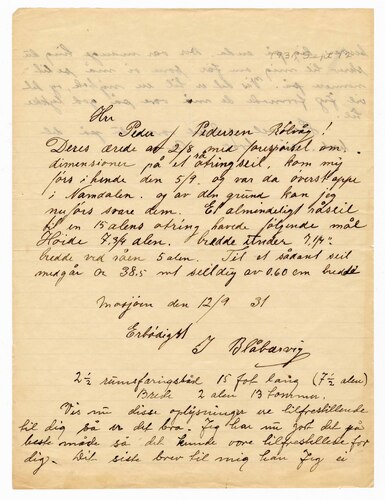 Hr
Peder Pedersen Rölvåg!
Deres ærede av 2/8 med forespörsel om
dimensioner på et råotringseil, kom mig
förs i hende den 5/9. og var da överst oppe
i Namdalen. og av den grund kan jeg
nu förs svare dem. Et almindeligt råseil
til en 15 alens otring havde følgende mål
Höide 7 3/4 alen. bredde under 7 1/4 "
bredde ved råen 5 alen. Til et sådant seil
medgår ca 38.5 mt seilldug av 0.60 cm bredde
Mosjöen den 12/9 31
Erbödigst
J Blåbærvig
2 1/2 rumsfaringsbåd 15 fot lang (7 1/2 alen)
Brede 2 alen 13 tommer.
Vis nu disse oplysninger er tilfresstillende
til dig så er det bra. Jeg har nu gjot det på
beste måde så det kunde vore tilfresstillese for
dig. Dit siste brev til mig kan Jeg ei